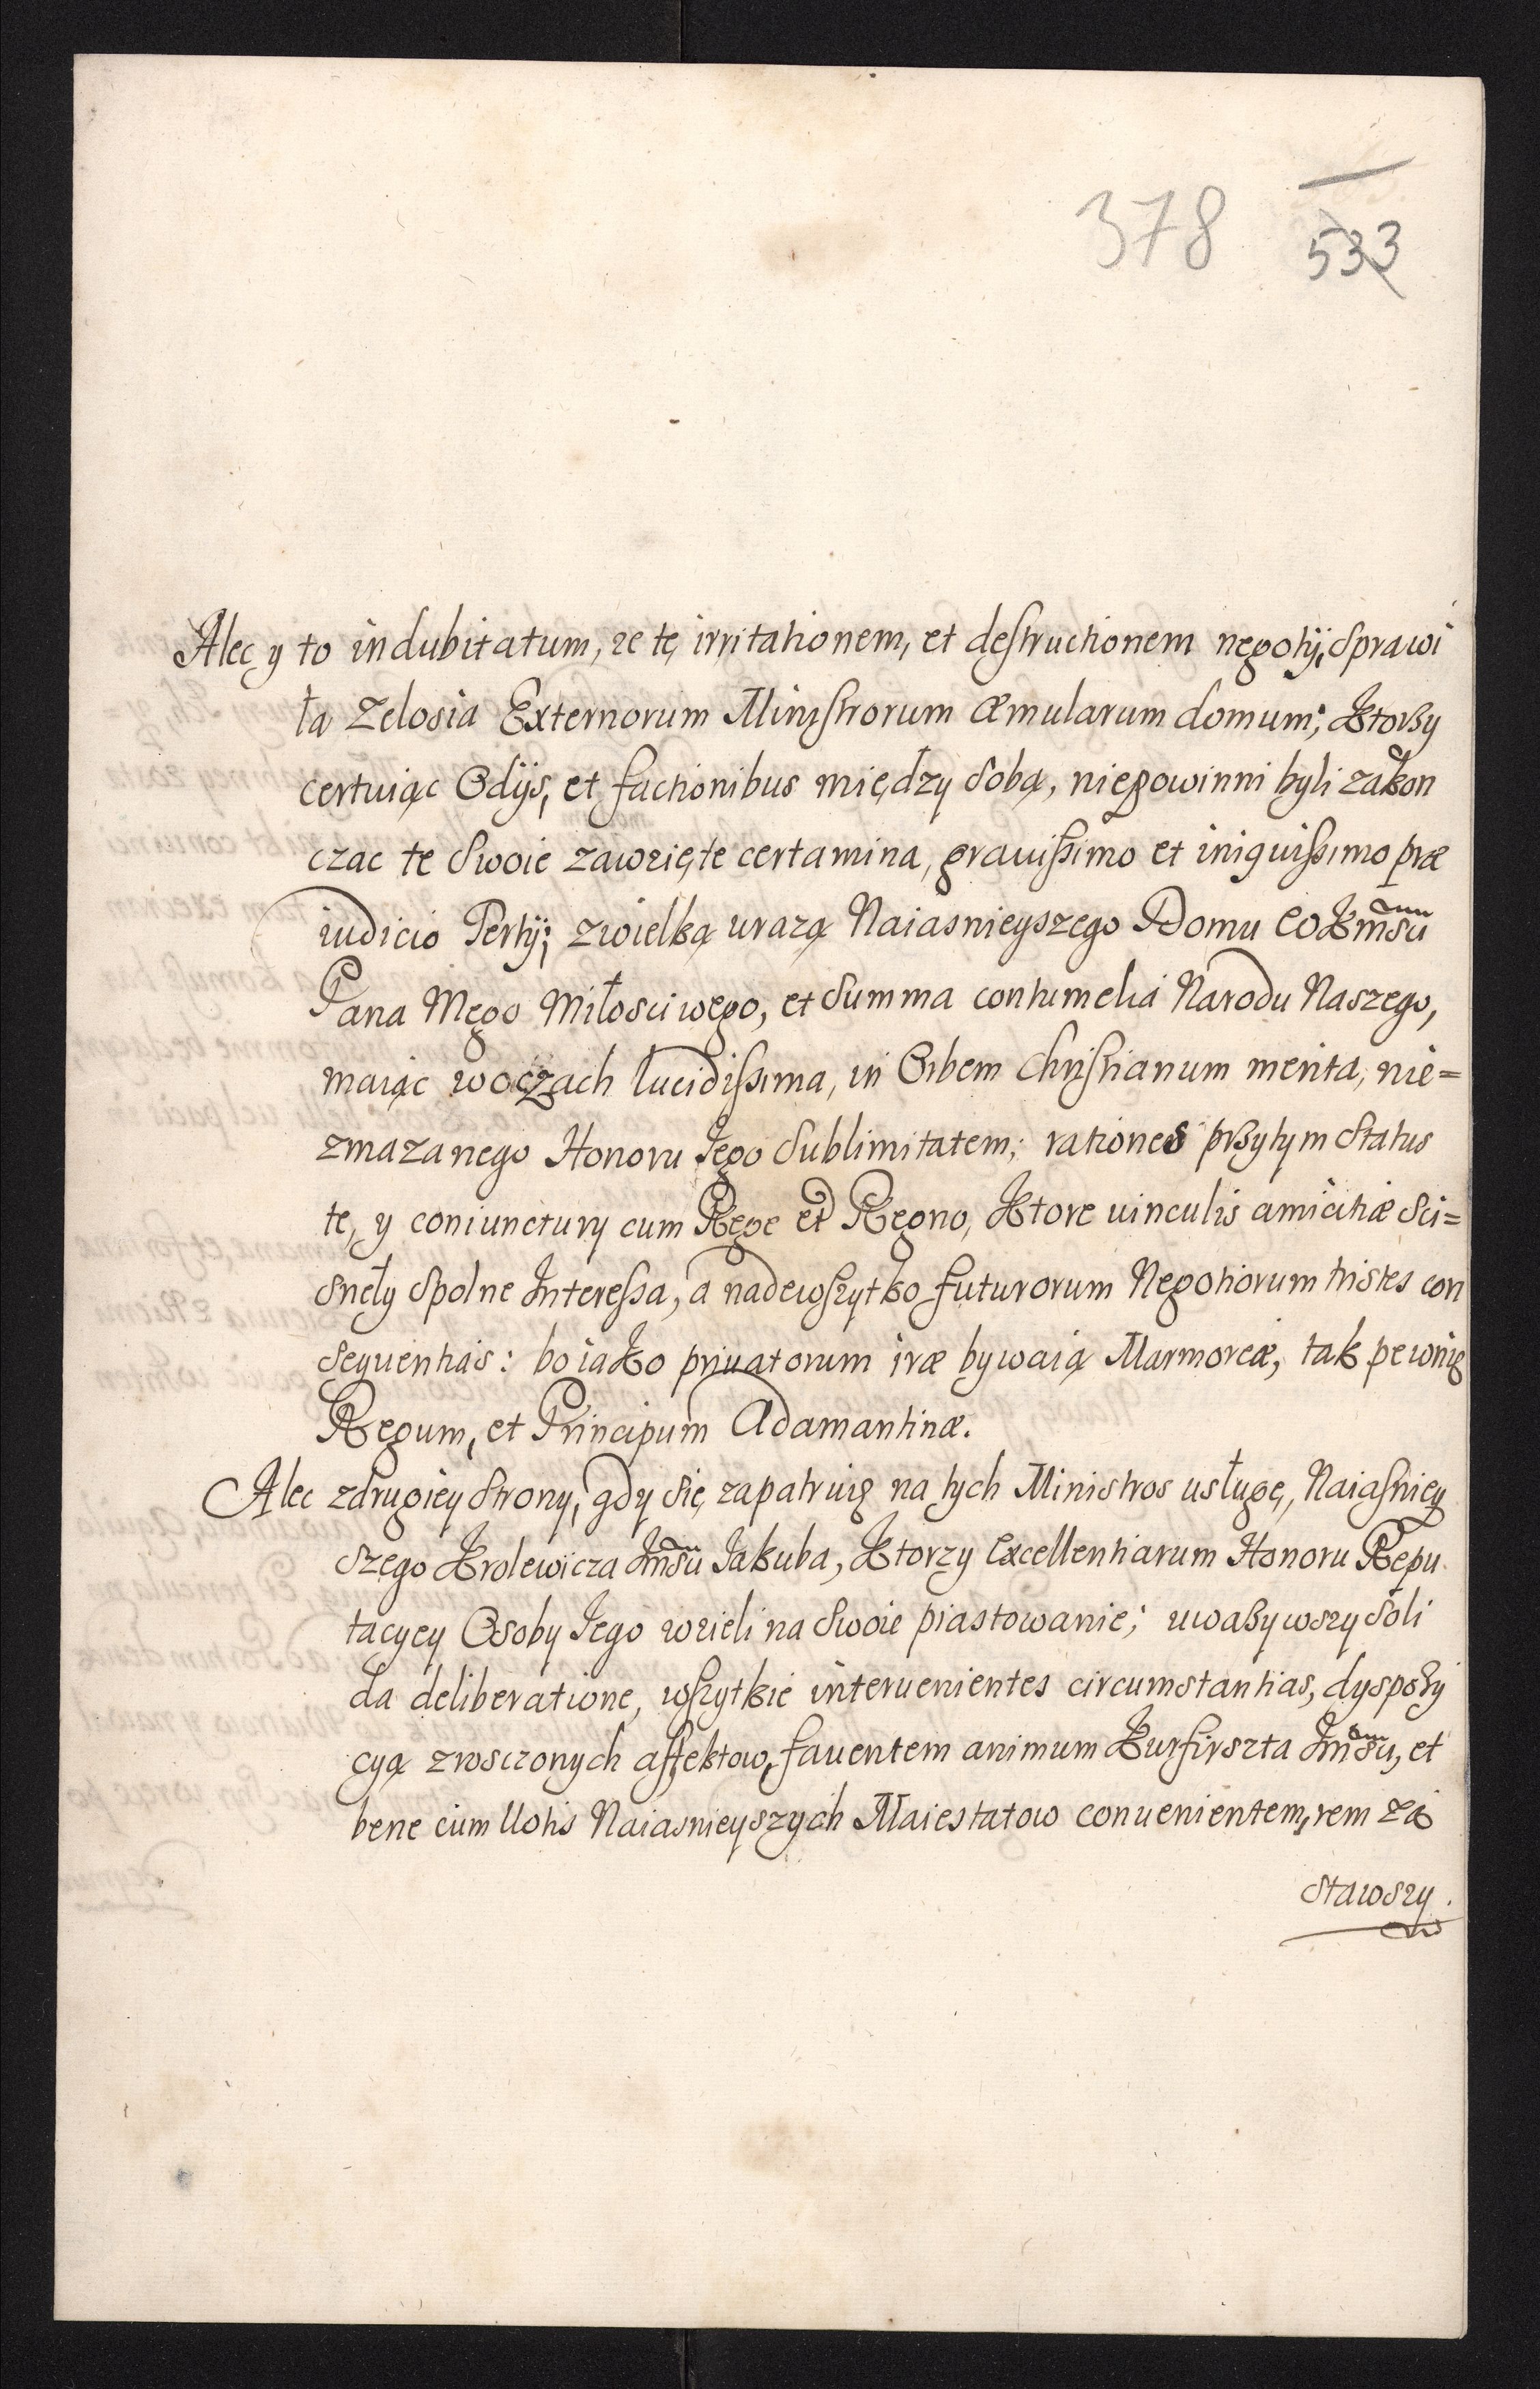 378 533
Alec y to indubitatum, ze tę irritationem, et destructionem negotÿ, sprawi
ła Zelosia Externorum Ministrorum æmularum domum; Ktorzy
certuiąc Odÿs, et factionibus między sobą, niepowinni byli zakon
czac te swoie zawzięte certamina, grauissimo et iniquissimo præ
iudicio Tertÿ; zwielką urazą Naiasnieyszego Domu WKmsci
Pana Mego Miłosciwego, et summa contumelia Narodu Naszego,
maiąc woczach lucidissima, in Orbem Christianum merita, nie=
zmazanego Honoru Jego sublimitatem; rationes przytym status
te, y coniunctury cum Rege et Regno, Ktore uinculis amicitiæ sci=
snęły spolne Interessa, a nadewszytko futurorum Negotiorum tristes con
seqventias: bo iako priuatorum iræ bywaią Marmoreæ, tak pewnie
Regum, et Principum Adamantinæ.
Alec zdrugiey strony, gdy się zapatruię na tych Ministros usługę, Naiasniey
szego Krolewicza Jmsci Jakuba, Ktorzy Excellentiarum Honoru Repu
tacyey Osoby Jego wzieli na swoie piastowanie; uwazywszy soli
da deliberatione, wszytkie interuenientes circumstantias, dyspozy
cyą zwsczonych affektow, fauentem animum Kurfirszta Jmsci, et
bene cum Uotis Naiasnieyszych Maiestatow conuenientem, rem za
stawszy.